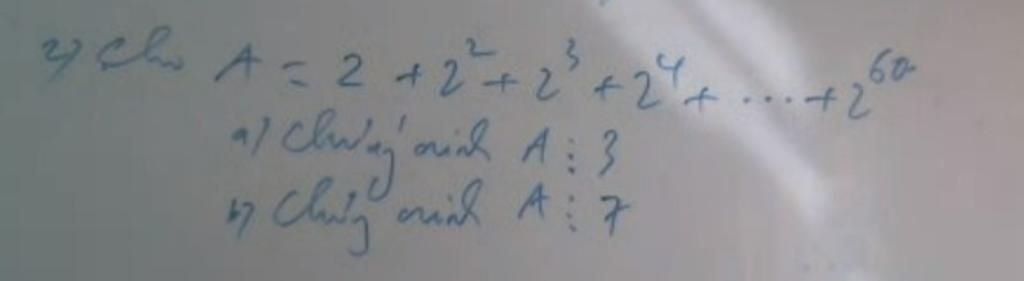 2) Cho A = 2 + 2² + 2³ + 2⁴ + ... + 2⁶⁰
a) Chứng minh A ⋮ 3
b) Chứng minh A ⋮ 7